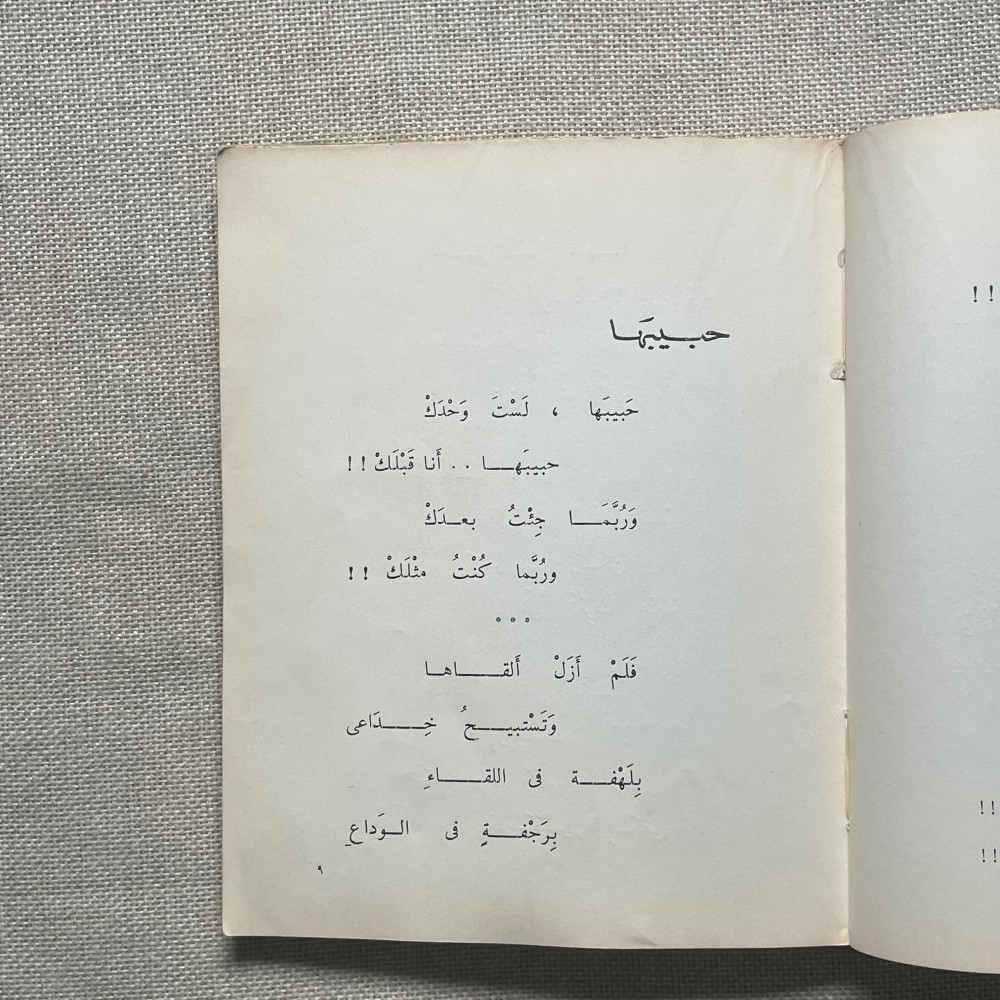 حبيبهَا
حَبيبَها ، لَسْتَ وَحْدَكْ
حبيبَهـا . . أَنا قَبْلَكْ ! !
وَرُبَّمَـا جِئْتُ بعـدَكْ
ورُبَّما كُنْتُ مثْلَكْ ! !
* * *
فَلَمْ أَزَلْ أَلقـاها
وَتَسْتبيـحُ خِـدَاعى
بِلَهْفـة فى اللقـاءِ
بِرَجْفـةٍ فى الـوَداعِ
٩
! !
! !
! !